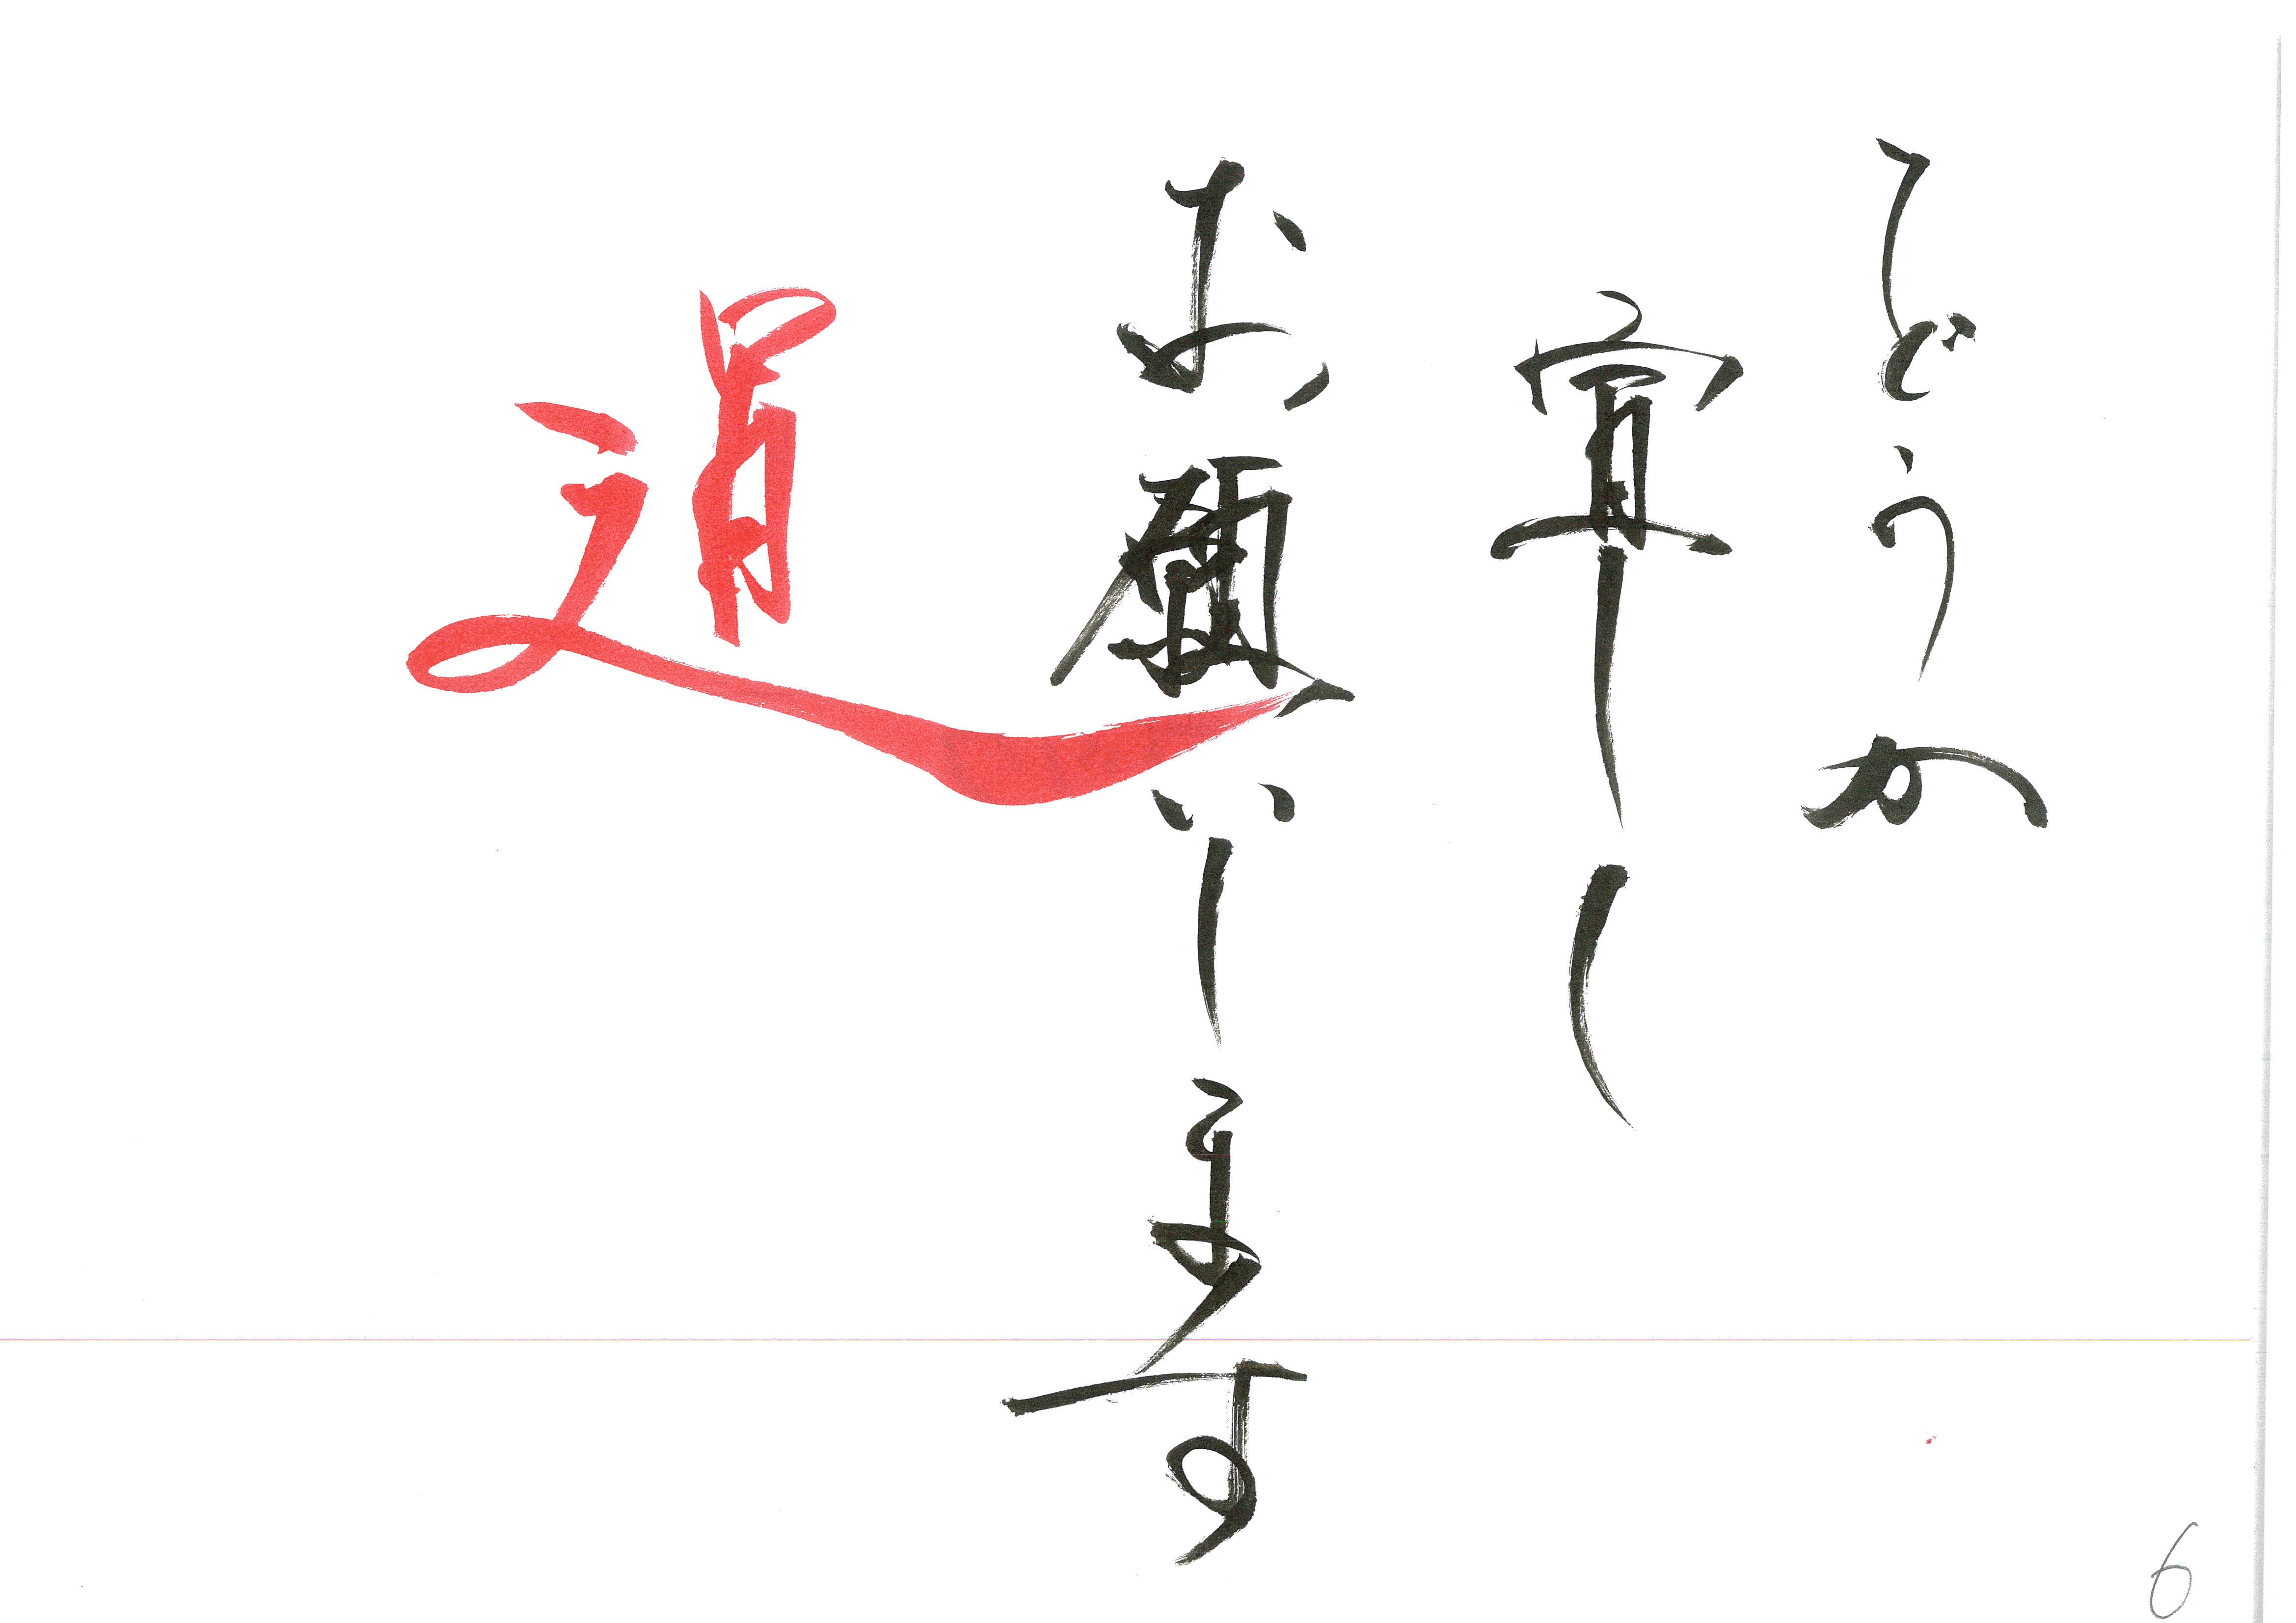 どうか
宜しく
お願いします
道
6